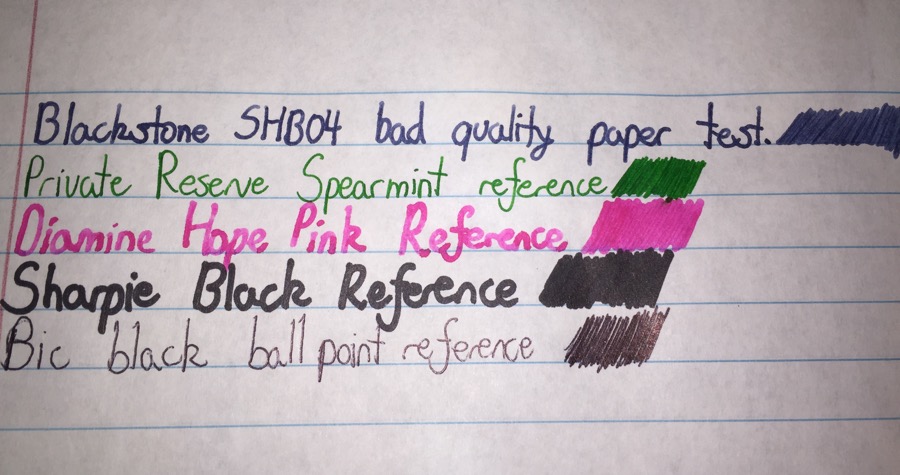 Blackstone SHB04 bad quality paper test.
Private Reserve Spearmint reference
Diamine Hope Pink Reference
Sharpie Black Reference
Bic black ball point reference